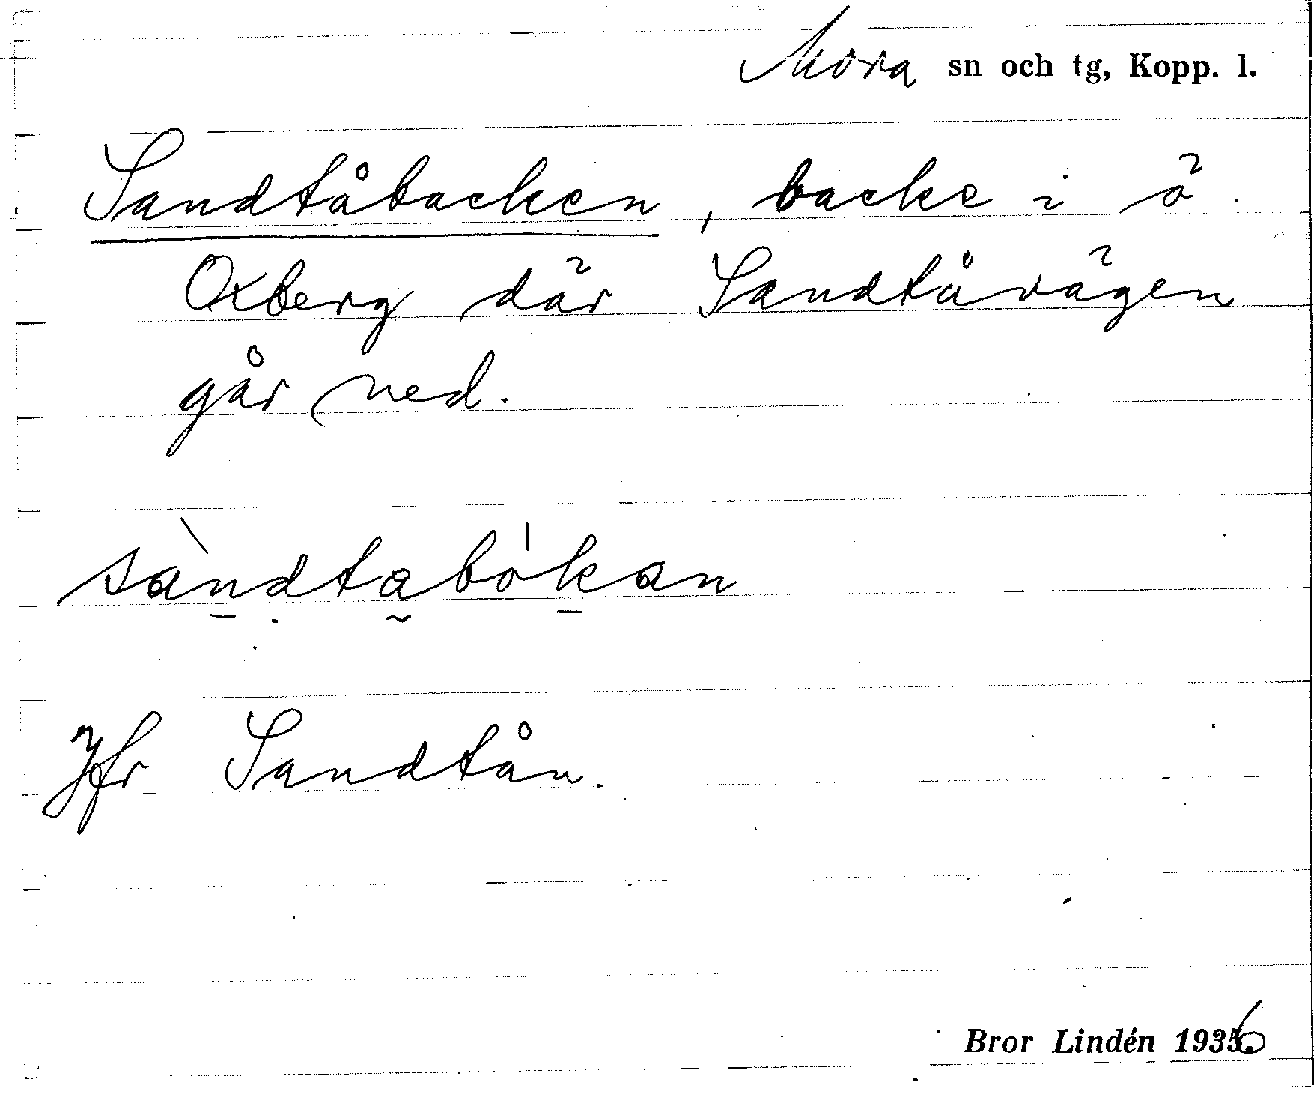 Mora sn och tg, Kopp. l.
Sandtåbacken, backe i ö
Oxberg där Sandtåvägen
går ned.
sàndtabók
Jfr Sandtån.
Bror Lindén 1936